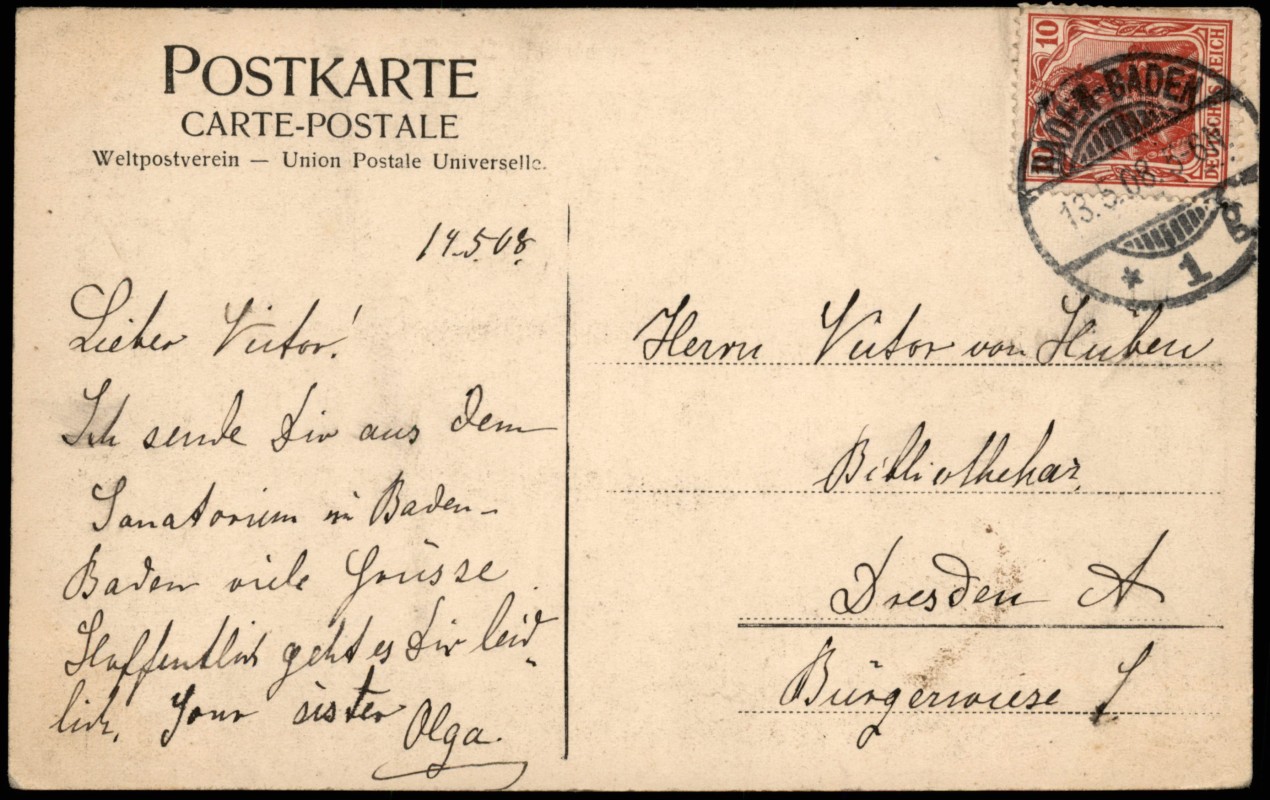 POSTKARTE
CARTE-POSTALE
Weltpostverein — Union Postale Universelle.
10
DEUTSCHES REICH
BADEN-BADEN
13.5.08.
* 1 g
14.5.08.
Lieber Victor!
Ich sende Dir aus dem
Sanatorium in Baden-
Baden viele Grüsse.
Hoffentlich geht es Dir leid-
lich. Your sister
Olga.
Herrn Victor von Huben
Bibliothekar
Dresden A
Bürgerwiese